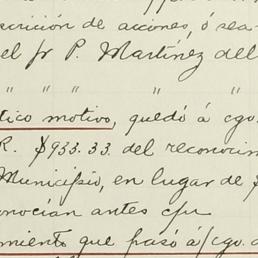 scrición de acciones, ó sea
el Sr P. Martínez del
" " " " "
tico motivo, quedó á cgo.
R. $933.33. del reconocim
Municipio, en lugar de $
nocían antes cfu
miento que pasó á/cgo. d